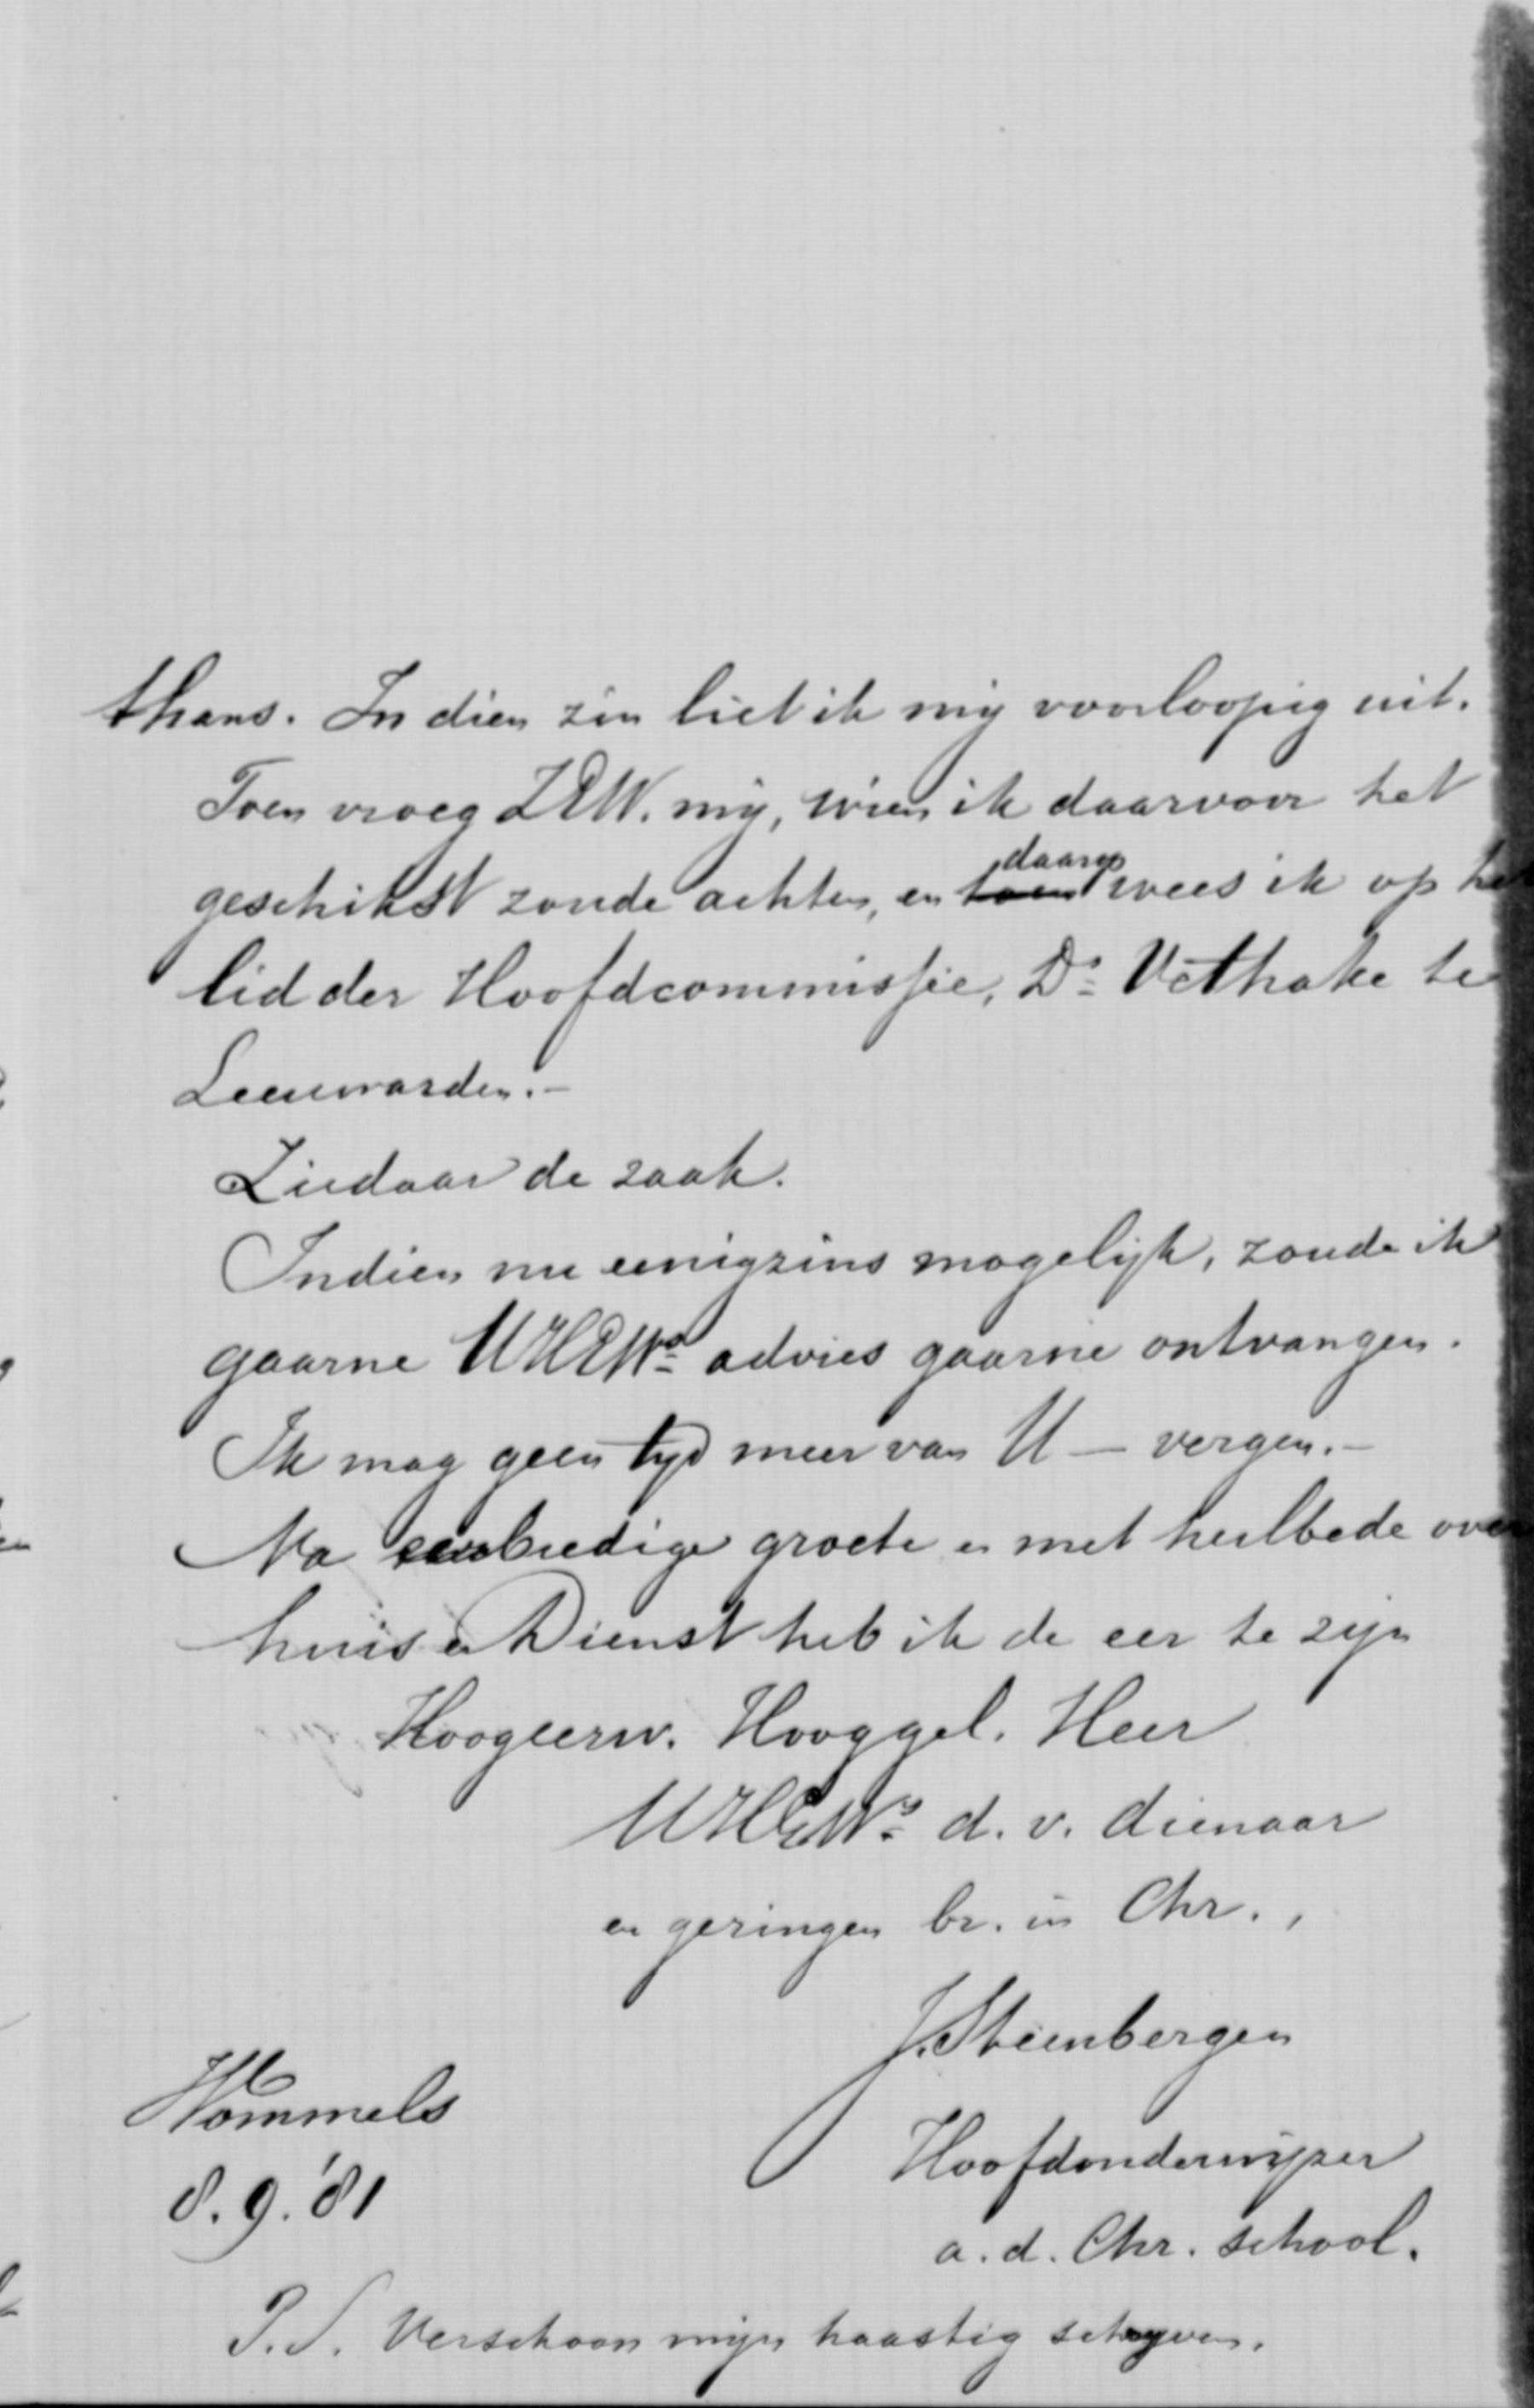 thans. In dien zin liet ik mij voorloopig uit.
Toen vroeg ZEW. mij, wien ik daarvoor het
geschikst zoude achten, en toen daarop wees ik op het
lid der Hoofdcommissie, Ds. Vethake te
Leeuwarden. -
Ziedaar de zaak.
Indien nu eenigzins mogelijk, zoude ik
gaarne UHEWs advies gaarne ontvangen.
Ik mag geen tijd meer van U - vergen. -
Na eerbiedige groete en met heilbede over
huis en Dienst heb ik de eer te zijn
Hoogeerw. Hooggel. Heer
UHEWs d. v. dienaar
en geringen br. in Chr.,
J. Steenbergen
Wommels
Hoofdonderwijzer
8. 9. '81
a. d. Chr. school.
P.S. Verschoon mijn haastig schrijven.